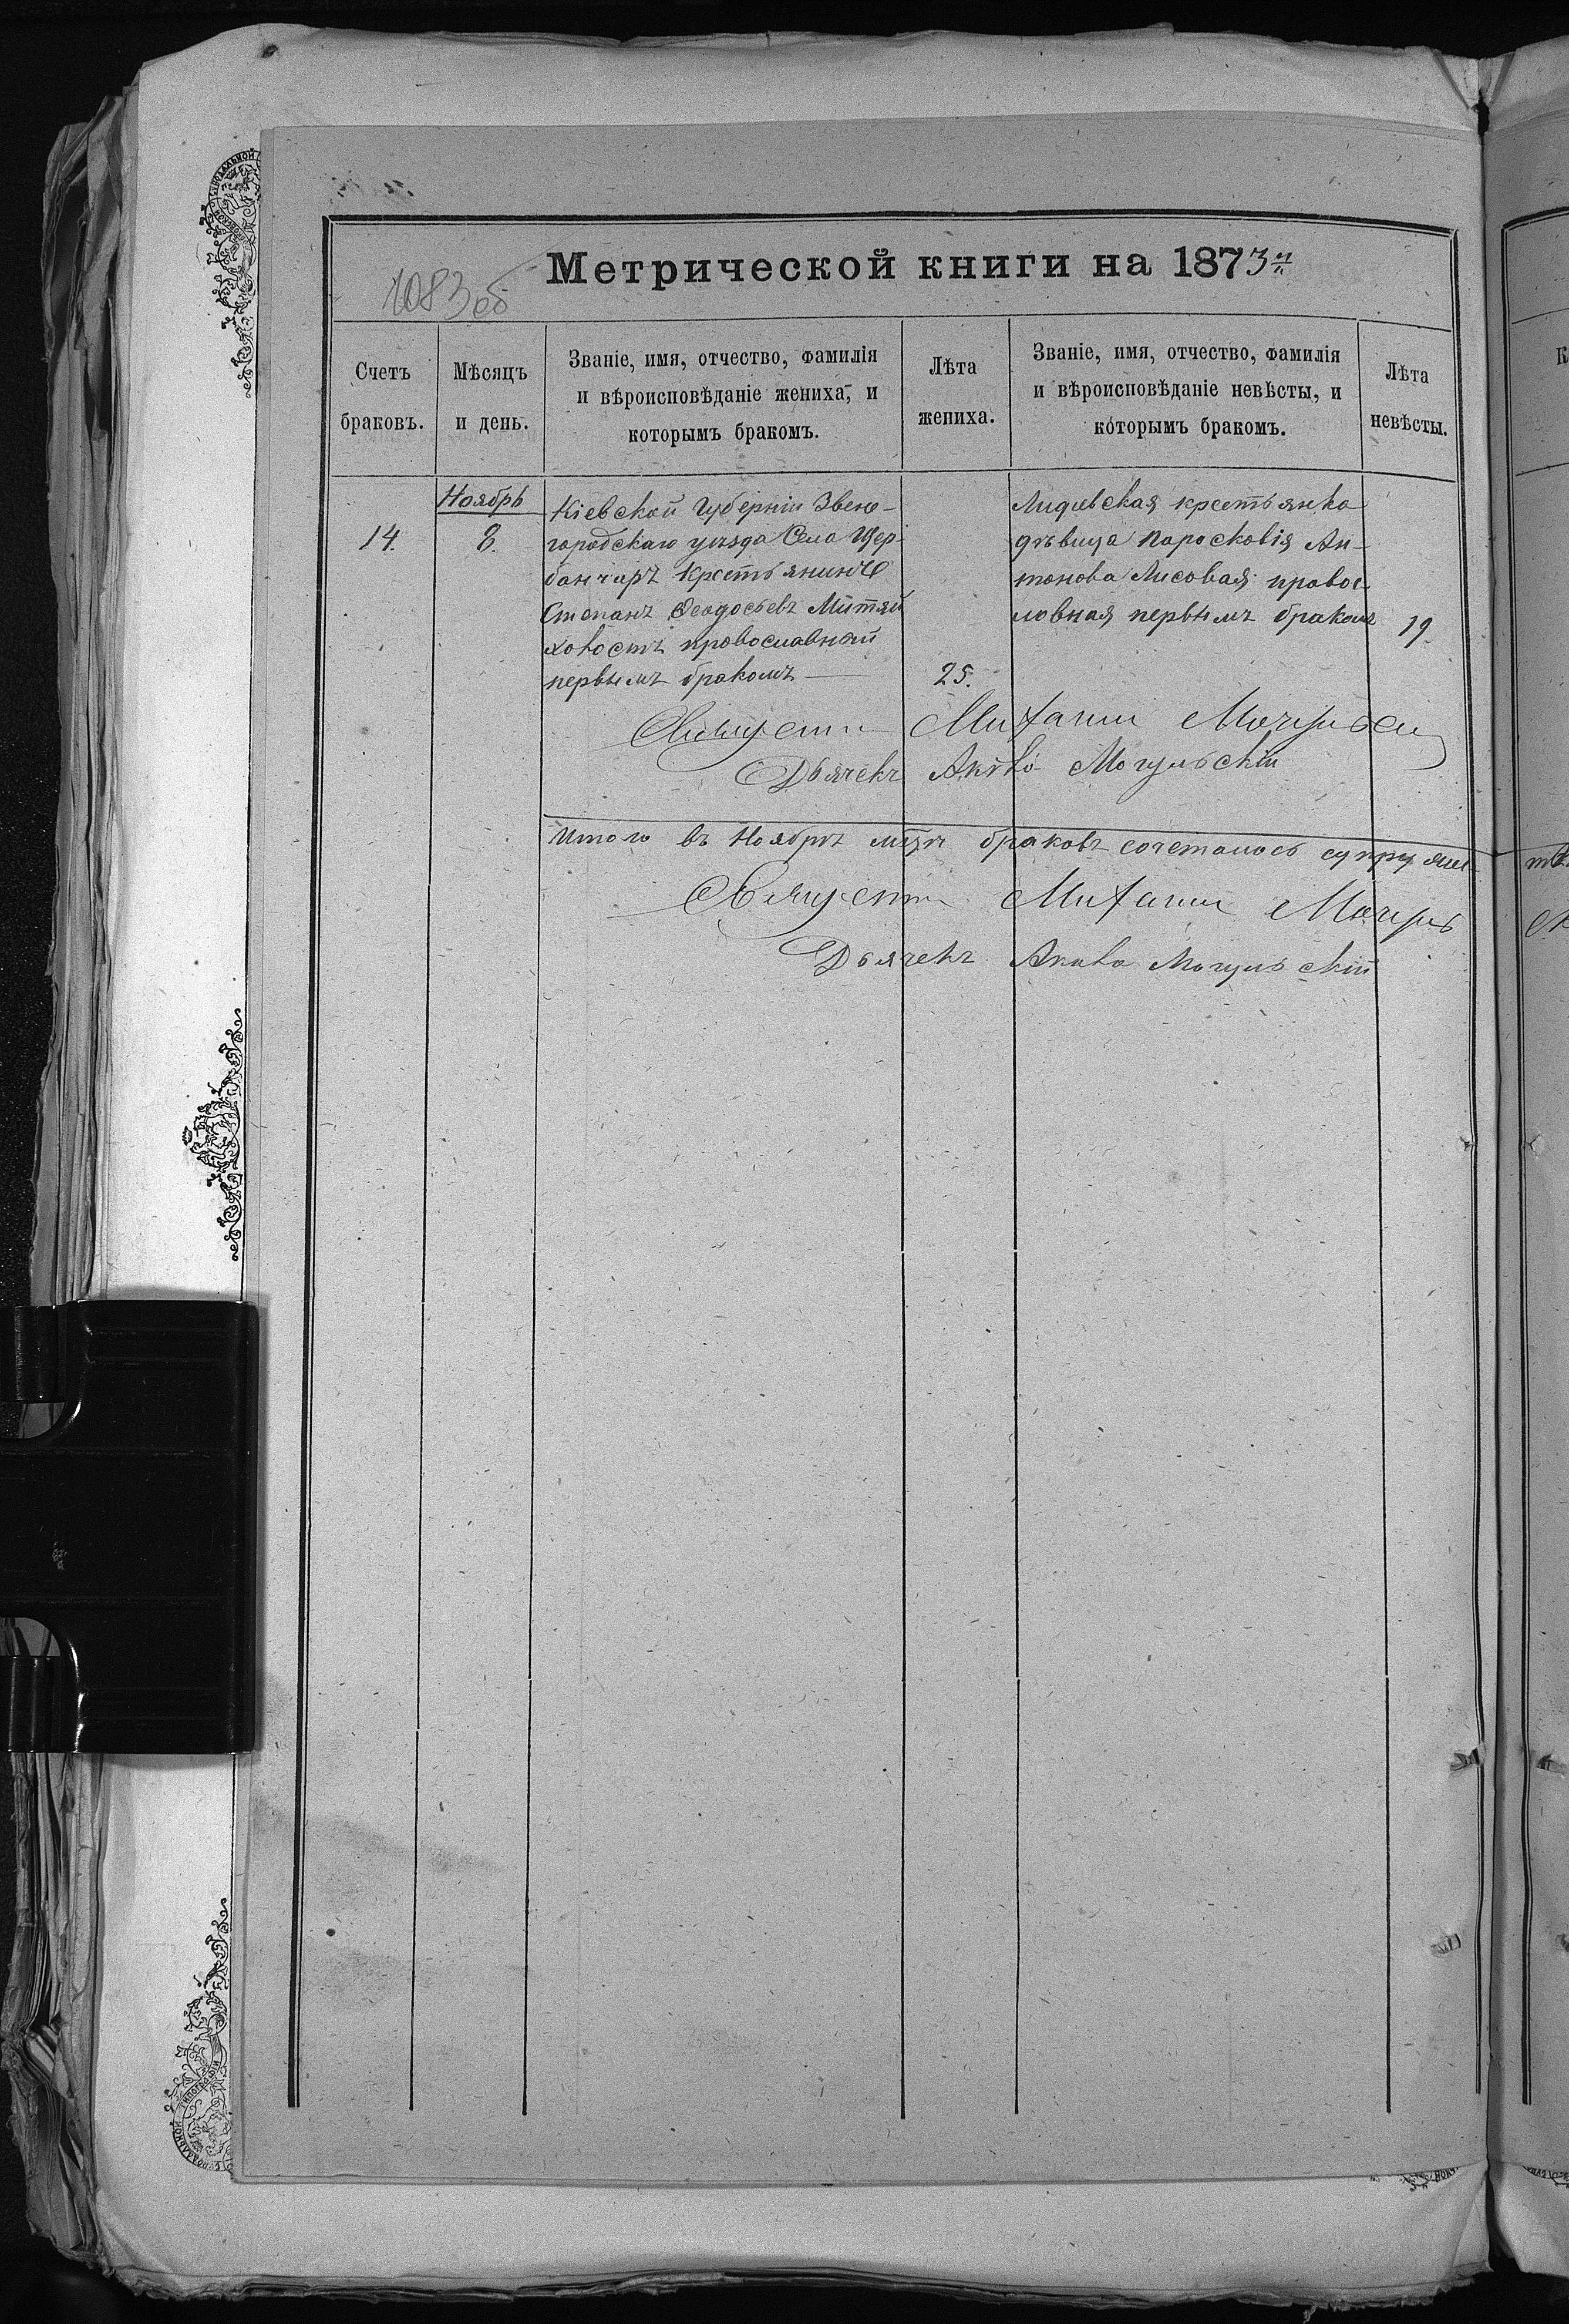 Метрической книги на 1873й
1083об
Счетъ браковъ.
Мѣсяцъ и день.
Званіе, имя, отчество, фамилія
и вѣроисповѣданіе жениха, и
которымъ бракомъ.
Лѣта жениха.
Званіе, имя, отчество, фамилія
и вѣроисповѣданіе невѣсты, и
которымъ бракомъ.
Лѣта невѣсты.
Ноябрь
14.
8.
Кіевской Губерніи Звено-
городскаго уѣзда Села Щер-
банчаръ Крестьянинъ
Степанъ Ѳеодосьевъ Митяй
ховостъ православный
первымъ бракомъ
25.
крестьянка
дѣвица Паросковія Ан-
тонова Лисовая православ-
ловная первымъ бракомъ
19.
Священ Михаилъ
Дьячекъ Могульскій
Итого въ Ноябрѣ мцѣ браковъ сочеталось супружес
Священ Михаилъ
Дьячекъ Могульскій